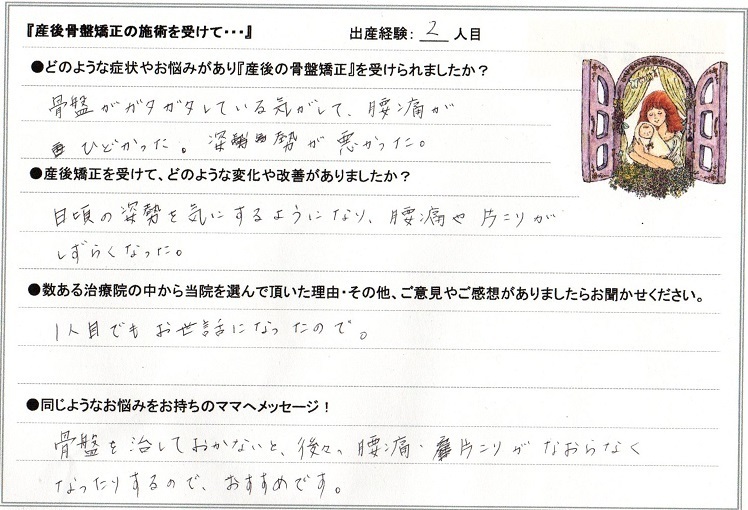 『産後骨盤矯正の施術を受けて・・・』 出産経験： 2 人目
●どのような症状やお悩みがあり『産後の骨盤矯正』を受けられましたか？
骨盤がガタガタしている気がして、腰痛が
ひどかった。姿勢が悪かった。
●産後矯正を受けて、どのような変化や改善がありましたか？
日頃の姿勢を気にするようになり、腰痛や片こりが
しずらくなった。
●数ある治療院の中から当院を選んで頂いた理由・その他、ご意見やご感想がありましたらお聞かせください。
1人目でもお世話になったので。
●同じようなお悩みをお持ちのママへメッセージ！
骨盤を治しておかないと、後々、腰痛・片こりがなおらなく
なったりするので、おすすめです。